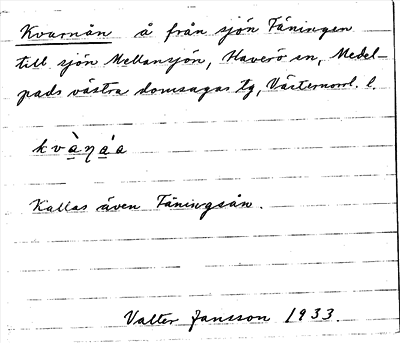 Kvarnån å från sjön Täningen
till sjön Mellansjön, Haverö sn, Medel-
pads västra domsagas tg, Västernorrl. l.
kvàŋáa
Kallas även Täningsån.
Valter Jansson 1933.